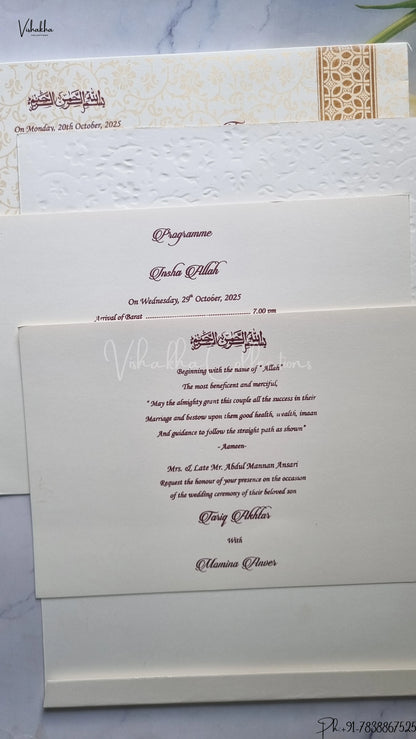 Vishakha
بسم الله الرحمن الرحيم
On Monday, 20th October, 2025
Programme
Insha Allah
On Wednesday, 29th October, 2025
Arrival of Barat ........................................ 7.00 pm
بسم الله الرحمن الرحيم
Vishakha Collections
Beginning with the name of " Allah"
The most beneficent and merciful,
" May the almighty grant this couple all the success in their
Marriage and bestow upon them good health, wealth, imaan
And guidance to follow the straight path as shown"
- Aameen-
Mrs. & Late Mr. Abdul Mannan Ansari
Request the honour of your presence on the occasion
of the wedding ceremony of their beloved son
Tariq Akhtar
With
Momina Anver
Ph.+91-7838867525